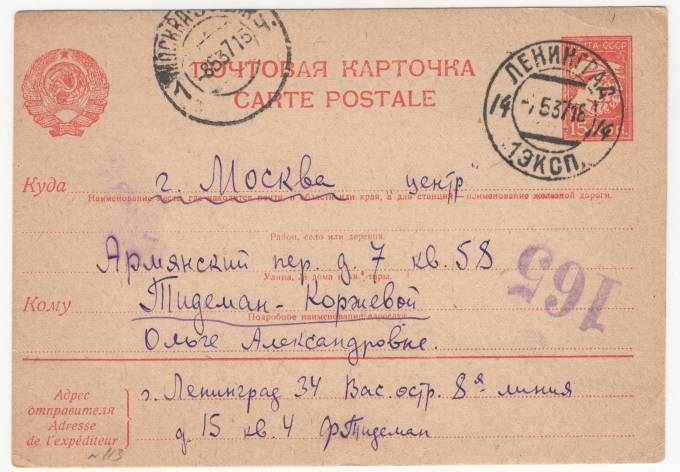 МОСКВА
8537 15
Ч.
ПОЧТОВАЯ КАРТОЧКА
CARTE POSTALE
ПОЧТА СССР
15
ЛЕНИНГРАД
14 -7.537 16 14
1 ЭКСП.
Куда г. Москва „центр"
Наименование места, где находится почта, и области или края, а для станций — наименование железной дороги.
Район, село или деревня.
Армянский пер. д. 7 кв. 58
Улица, № дома и квартиры.
Кому Тидеман-Коржевой
Подробное наименование адресата
Ольге Александровне.
165
Адрес
отправителя
Adresse
de l'expéditeur
г. Ленинград 34 Вас. остр. 8я линия
д. 15 кв. 4 ФТидеман
N 113